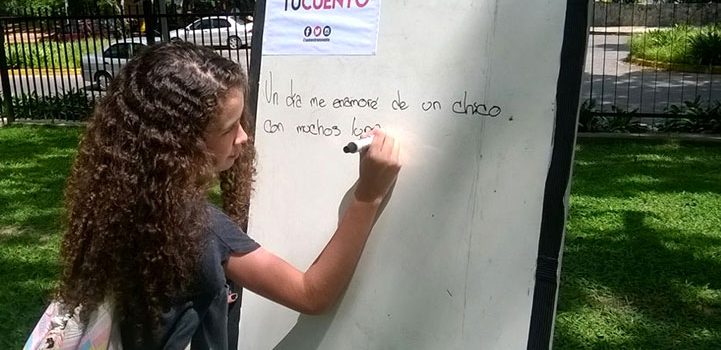 TUCUENTO
Un día me enamoré de un chico.
con muchos